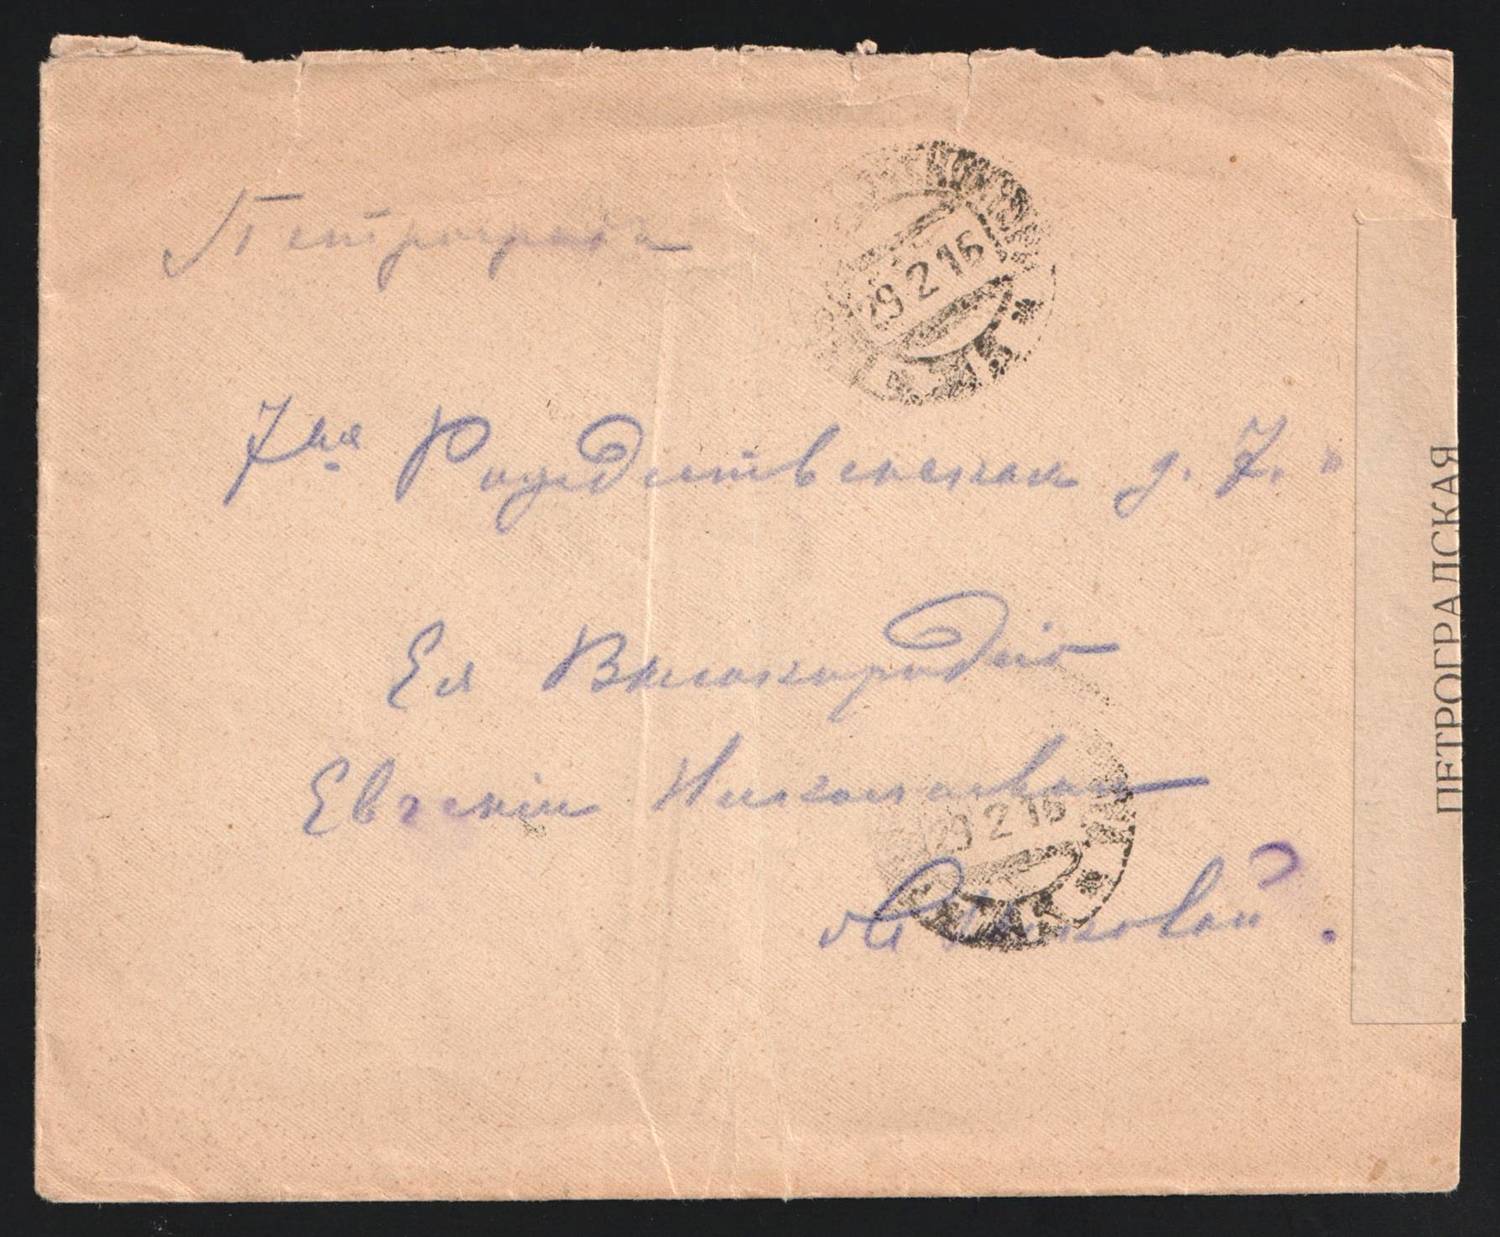 Петроградъ
29 2 16
7ая Рождественская д. 7.
Ея Высокородію
Евгеніи Николаевой
29 2 16
ПЕТРОГРАДСКАЯ